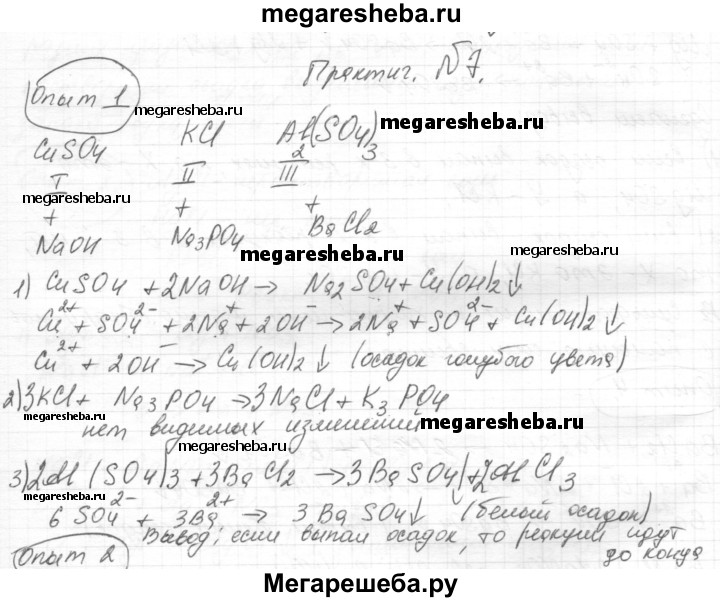 megaresheba.ru
Практич. №7.
Опыт 1
megaresheba.ru
CuSO4 KCl Al2(SO4)3
megaresheba.ru
I II III
megaresheba.ru
+ + +
NaOH Na3PO4 BaCl2
megaresheba.ru megaresheba.ru
1) CuSO4 + 2NaOH → Na2SO4 + Cu(OH)2↓
Cu2+ + SO42- + 2Na+ + 2OH- → 2Na+ + SO42- + Cu(OH)2↓
Cu2+ + 2OH- → Cu(OH)2↓ (осадок голубого цвета)
2) 3KCl + Na3PO4 → 3NaCl + K3PO4
megaresheba.ru
нет видимых изменений
megaresheba.ru
megaresheba.ru
3) 2Al(SO4)3 + 3BaCl2 → 3BaSO4↓ + 2AlCl3
megaresheba.ru
6SO42- + 3Ba2+ → 3BaSO4↓ (белый осадок)
Вывод: если выпал осадок, то реакции идут
до конца
Опыт 2
Мегарешеба.ру